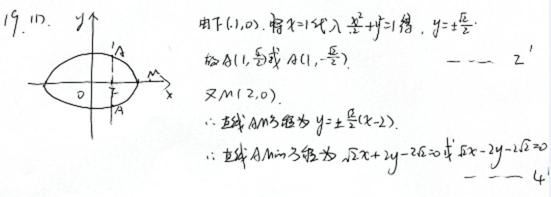 19. (1).
y
A
M
O
F
x
A
由F(1,0). 将x=1代入 x²/2+y²=1得, y=±√2/2.
故A(1,√2/2)或A(1,-√2/2). --- 2'
又M(2,0).
∴直线AM方程为y=±√2/2(x-2).
∴直线AM的方程为√2x+2y-2√2=0或√2x-2y-2√2=0
--- 4'